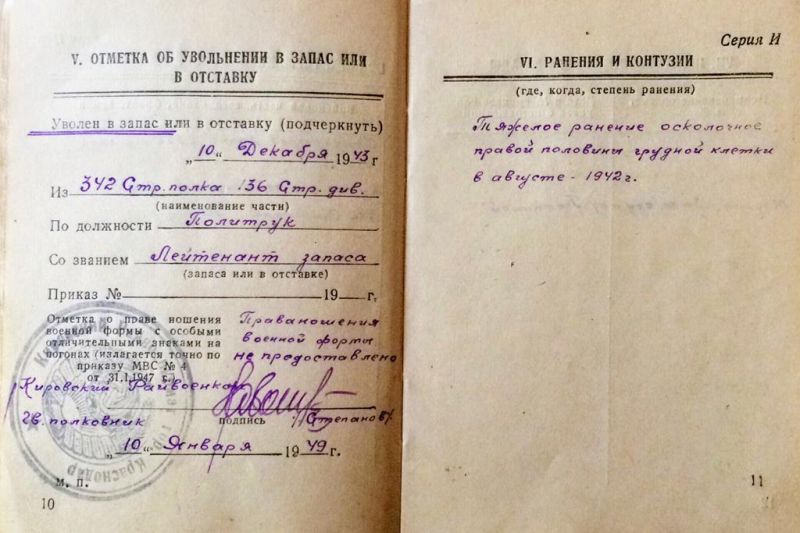 V. ОТМЕТКА ОБ УВОЛЬНЕНИИ В ЗАПАС ИЛИ
В ОТСТАВКУ
Уволен в запас или в отставку (подчеркнуть)
„10“ Декабря 1943 г
Из 342 Стр. полка 136 Стр. див.
(наименование части)
По должности Политрук
Со званием Лейтенант запаса
(запаса или в отставке)
Приказ № 19 г.
Отметка о праве ношения
военной формы с особыми
отличительными знаками на
погонах (излагается точно по
приказу МВС № 4
от 31.1.1947 г.)
Права ношения
военной формы
не предоставлено
Кировский Райвоенком
Гв. полковник подпись /Степанов/
„10“ Января 1949 г.
Краснодар
м. п.
10
Серия И
VI. РАНЕНИЯ И КОНТУЗИИ
(где, когда, степень ранения)
Тяжелое ранение осколочное
правой половины грудной клетки
в августе - 1942 г.
11